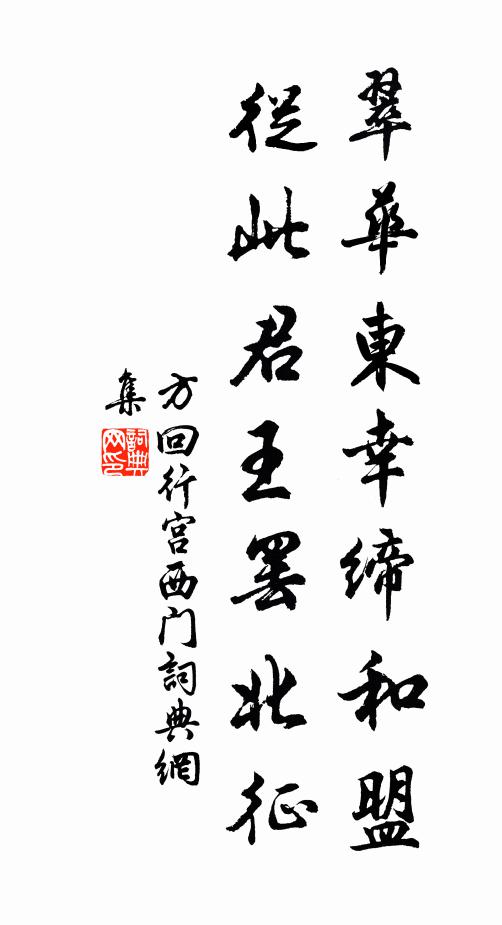 翠華東幸締和盟
從此君王罷北征
方回行宮西门詞典網
集
詞典网印